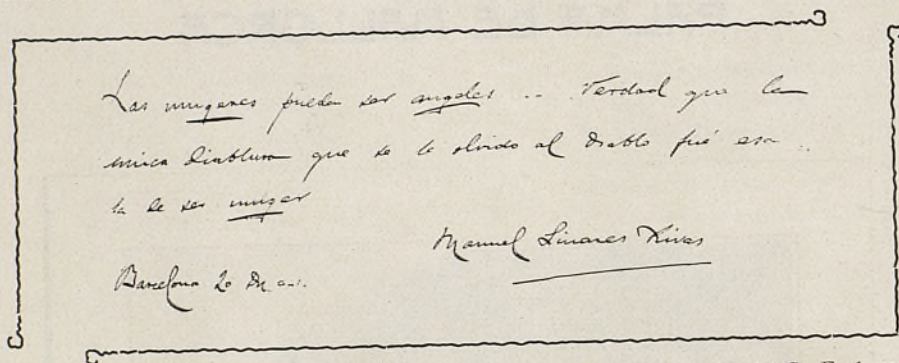 Las mugeres pueden ser angeles .. Verdad que la
unica diablura que se le olvido al Diablo fué esa ..
la de ser muger
Manuel Linares Rivas
Barcelona 20